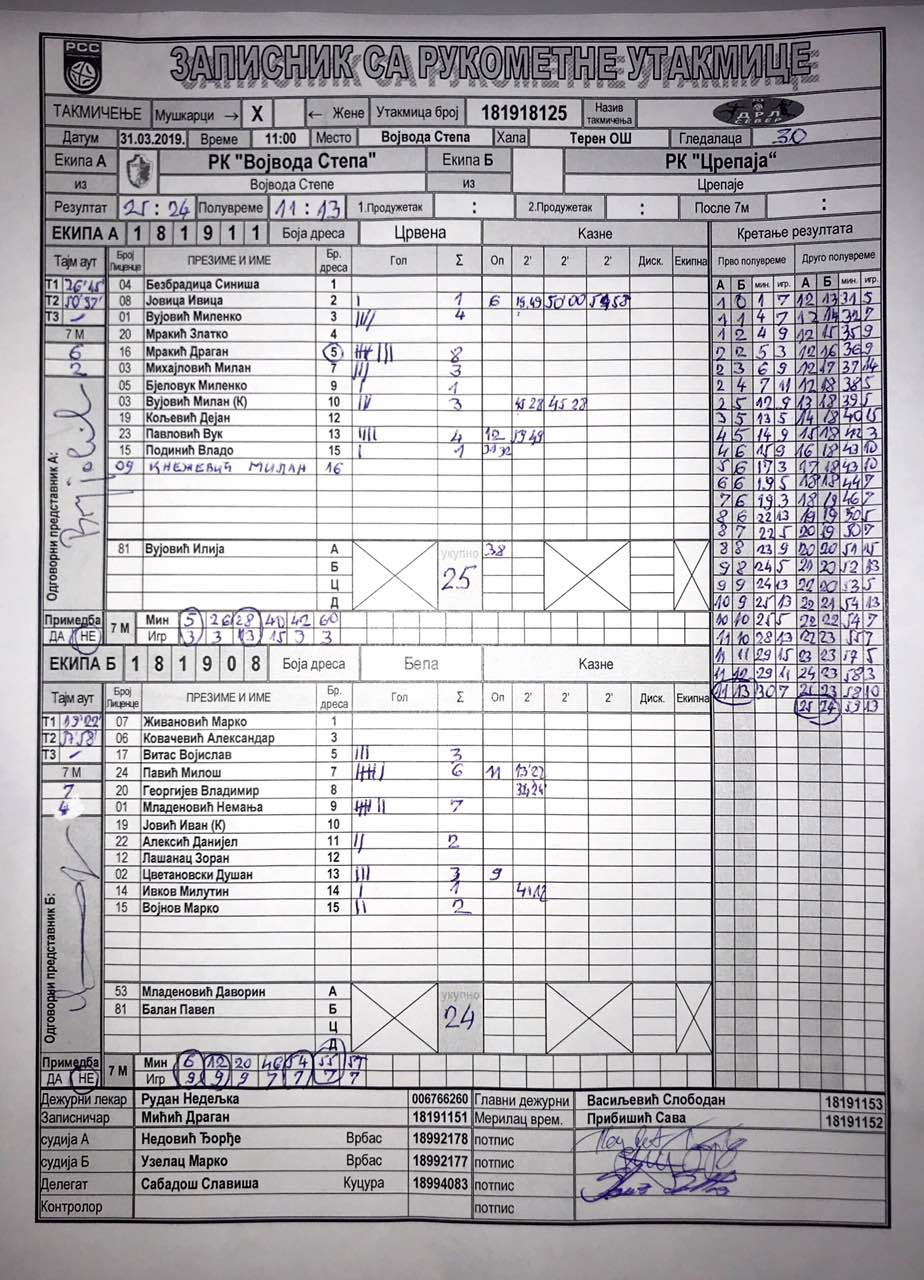 РСС
ЗАПИСНИК СА РУКОМЕТНЕ УТАКМИЦЕ
ТАКМИЧЕЊЕ Мушкарци → X ← Жене Утакмица број 181918125 Назив такмичења ДРЛ СЕВЕР
Датум 31.03.2019. Време 11:00 Место Војвода Степа Хала Терен ОШ Гледалаца 30
Екипа А РК "Војвода Степа" Екипа Б РК "Црепаја“
из Војводa Степе из Црепаје
Резултат 25:24 Полувреме 11:13 1.Продужетак : 2.Продужетак : После 7м :
ЕКИПА А 1 8 1 9 1 1 Боја дреса Црвена Казне Кретање резултата
Тајм аут Број Лиценце ПРЕЗИМЕ И ИМЕ Бр. дреса Гол Σ Оп 2' 2' 2' Диск. Екипна Прво полувреме Друго полувреме
А Б мин. игр. А Б мин. игр.
Т1 26'45 04 Безбрадица Синиша 1
Т2 50'37 08 Јовица Ивица 2 I 1 6 50 00
Т3 – 01 Вујовић Миленко 3 IIII 4
7 М 20 Мракић Златко 4
6 16 Мракић Драган 5 8
2 03 Михајловић Милан 7 III 3
05 Бјеловук Миленко 9 I 1
03 Вујовић Милан (К) 10 III 3 45 28 45 28
19 Кољевић Дејан 12
23 Павловић Вук 13 IIII 4 12
15 Подинић Владо 15 I 1
09 КНЕЖЕВИЋ МИЛАН 16
Одговорни представник А:
81 Вујовић Илија А укупно 25 38
Б
Ц
Д
Примедба ДА НЕ 7 М Мин 5 26 28 40 42 60
Игр 3 3 13 15 3 3
1 0 1 7 12 13 31 5
1 1 4 7 12 14 32 7
1 2 4 9 12 15 35 9
2 2 5 3 12 16 36 9
2 3 6 9 12 17 37 14
2 4 7 11 12 18 38 5
2 5 12 9 13 18 39 5
3 5 13 5 14 18 40 15
4 5 14 9 15 18 42 3
4 6 15 9 16 18 43 10
5 6 17 3 17 18 43 10
6 6 19 5 18 18 44 7
7 6 19 3 18 19 46 7
8 6 22 13 19 19 50 5
8 7 22 5 20 19 50 7
8 8 23 9 20 20 51 15
9 8 24 5 21 20 52 13
9 9 24 13 22 20 53 5
10 9 25 13 22 21 54 13
10 10 25 5 22 22 54 7
11 10 28 13 22 23 55 7
11 11 29 15 23 23 57 5
11 12 29 11 24 23 58 3
11 13 30 7 24 23 58 10
25 24 59 13
ЕКИПА Б 1 8 1 9 0 8 Боја дреса Бела Казне
Тајм аут Број Лиценце ПРЕЗИМЕ И ИМЕ Бр. дреса Гол Σ Оп 2' 2' 2' Диск. Екипна
Т1 19'22' 07 Живановић Марко 1
Т2 57'58' 06 Ковачевић Александар 3
Т3 – 17 Витас Војислав 5 III 3
7 М 24 Павић Милош 7 6 11 13'22
7 20 Георгијев Владимир 8
4 01 Младеновић Немања 9 7
19 Јовић Иван (К) 10
22 Алексић Данијел 11 II 2
12 Лашанац Зоран 12
02 Цветановски Душан 13 III 3 9
14 Ивков Милутин 14 I 1
15 Војнов Марко 15 II 2
Одговорни представник Б:
53 Младеновић Даворин А укупно 24
81 Балан Павел Б
Ц
Д
Примедба ДА НЕ 7 М Мин 6 12 20 46 54 55 57
Игр 9 9 9 7 7 7 7
Дежурни лекар Рудан Недељка 006766260 Главни дежурни Васиљевић Слободан 18191153
Записничар Мићић Драган 18191151 Мерилац врем. Прибишић Сава 18191152
судија А Недовић Ђорђе Врбас 18992178 потпис
судија Б Узелац Марко Врбас 18992177 потпис
Делегат Сабадош Славиша Куцура 18994083 потпис
Контролор потпис